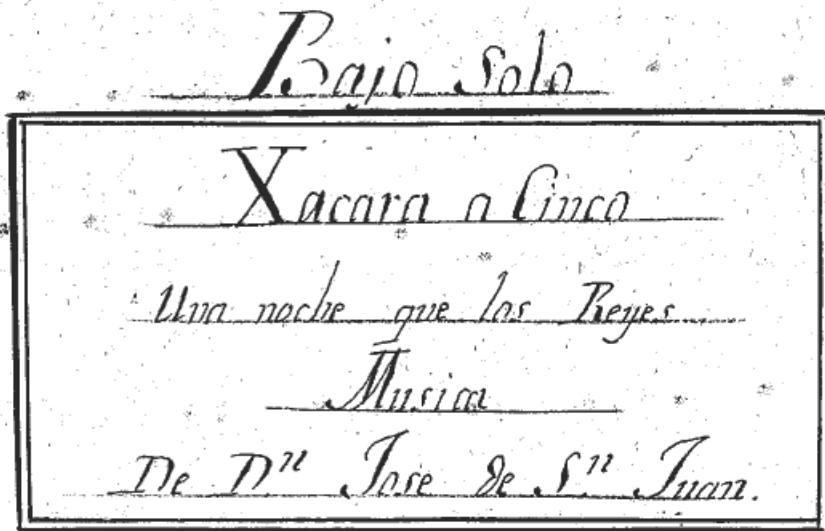 Bajo Solo
Xacara a Cinco
Una noche que los Reyes
Musica
De Dⁿ Jose de Sⁿ Juan.